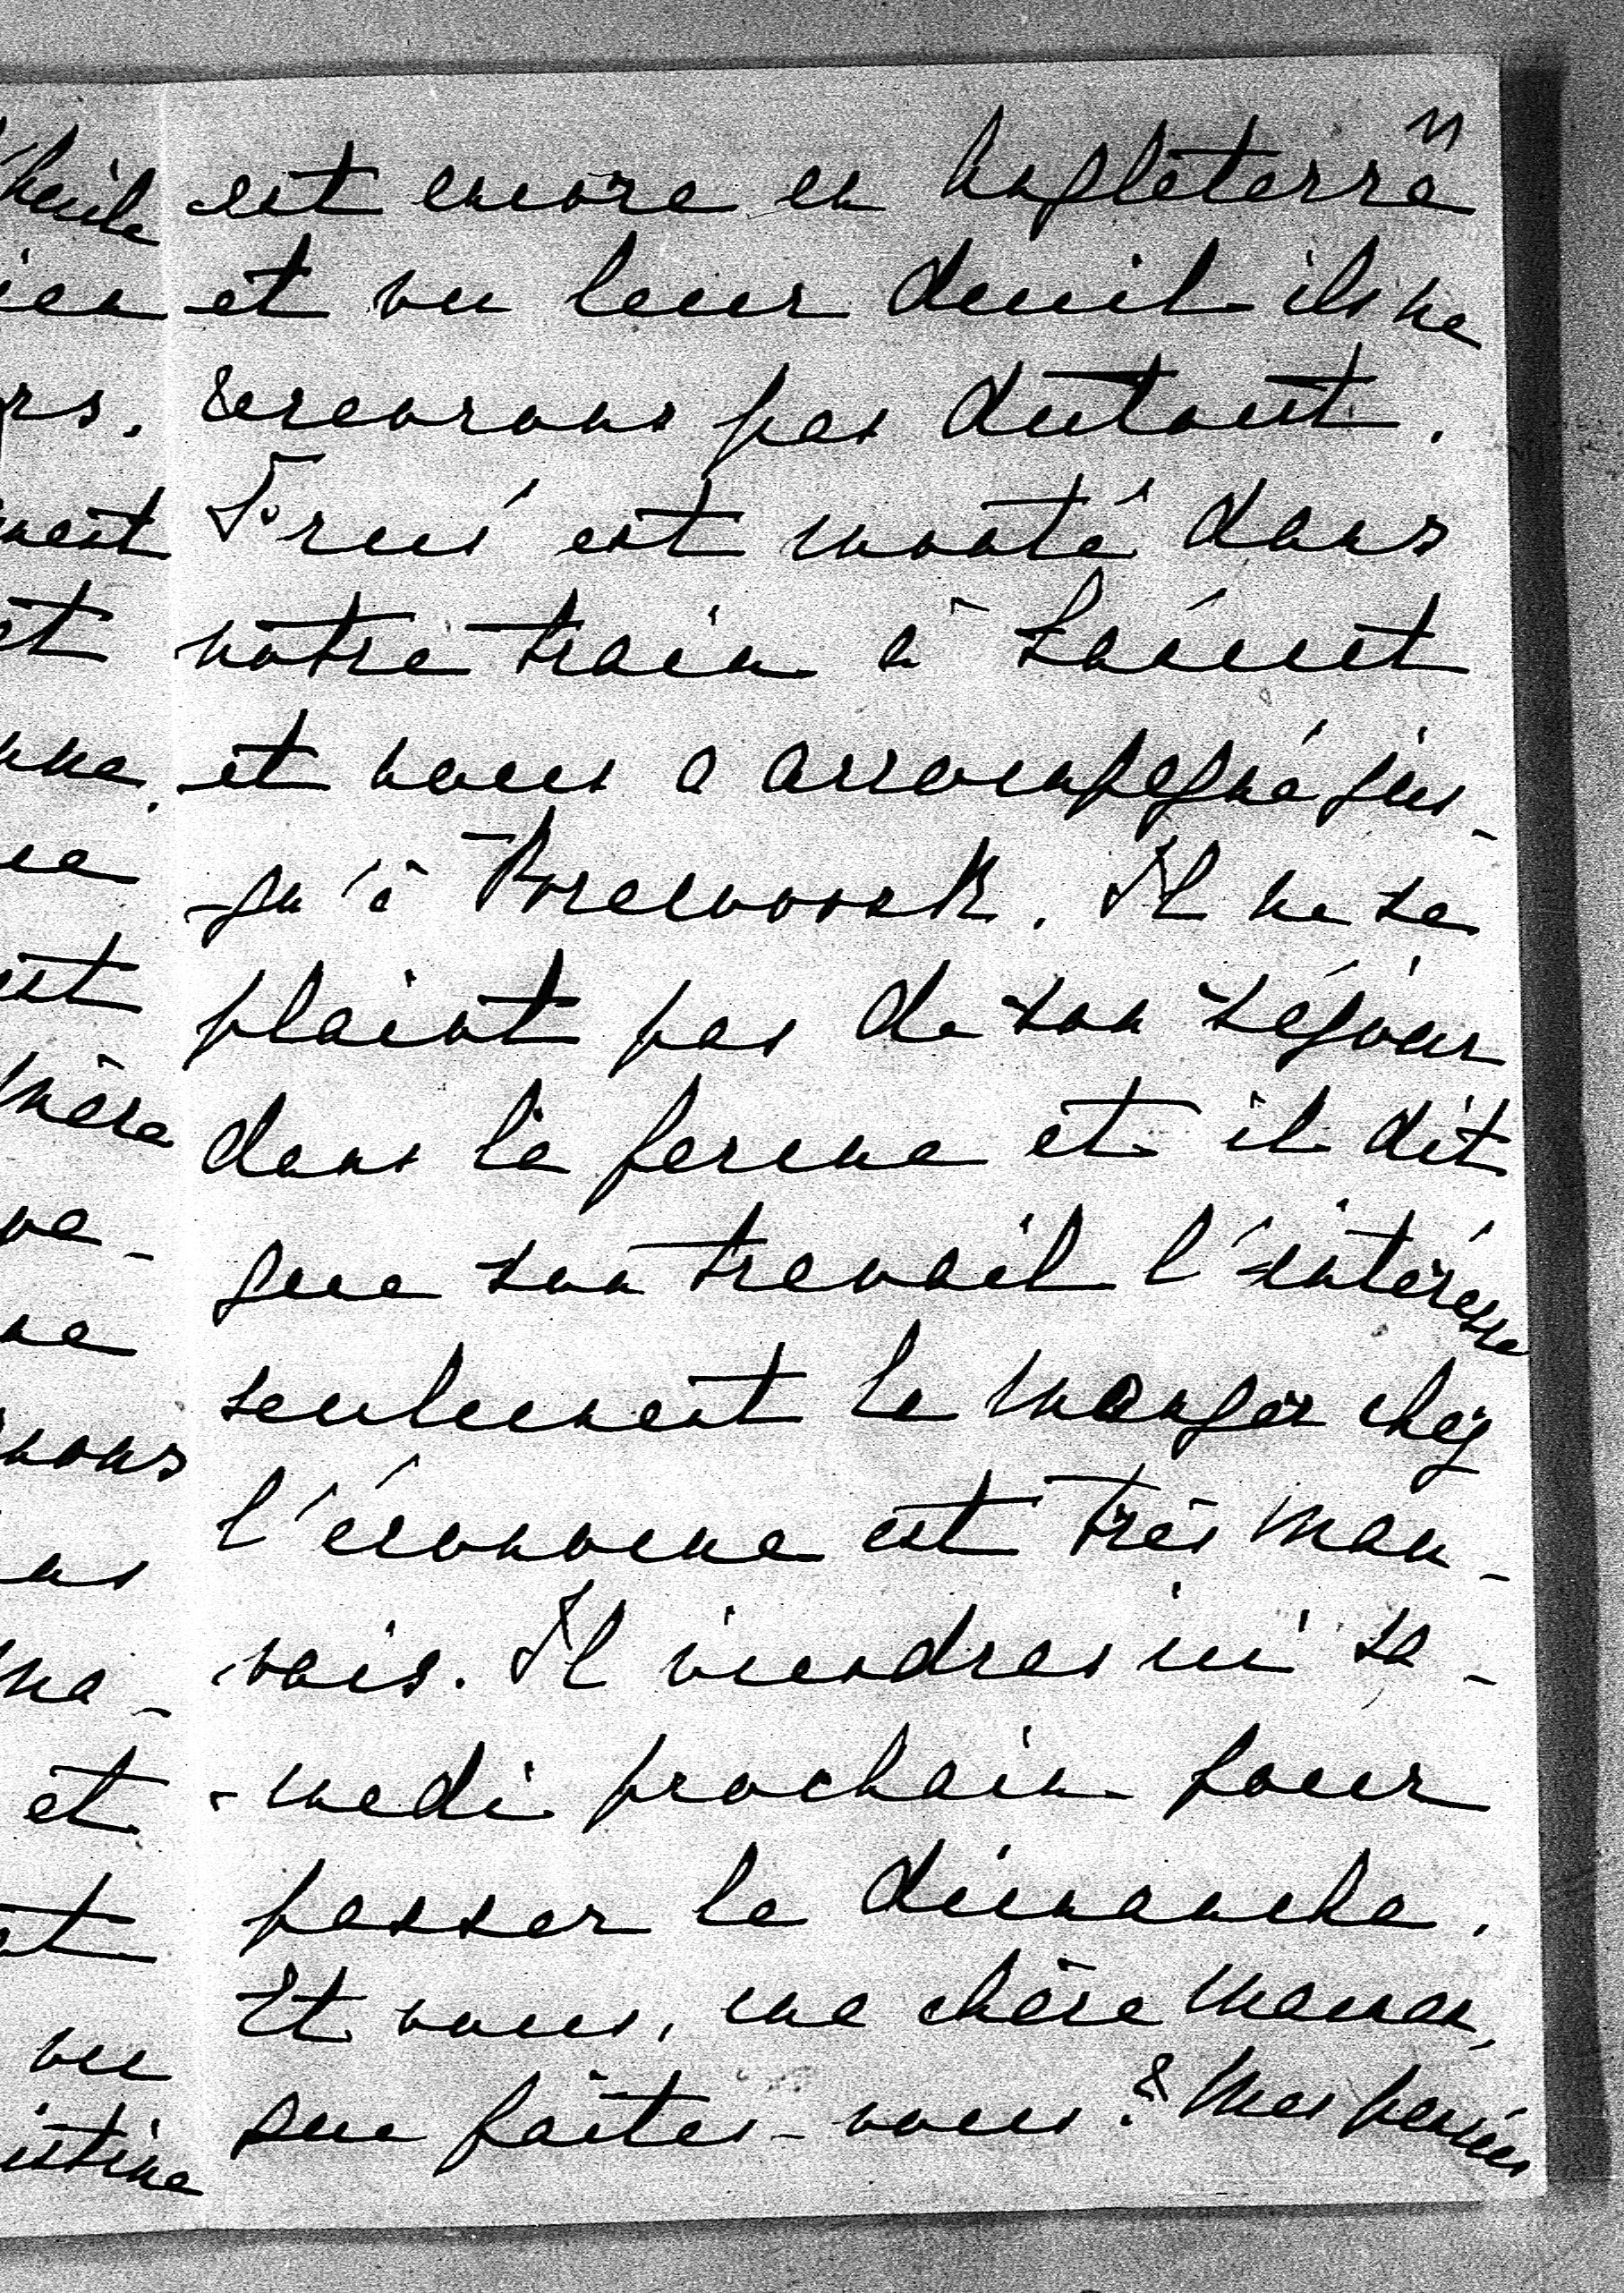 ien
rs.
ment
et
nne,
ue
est
Mère
ve-
ne
nons
ans
ma-
et
et
vu
istine
11
est encore en Angleterre
et vu leur deuil ils ne
recevrons pas dutout.
est monté dans
notre train à Łańcut
et nous a accompagné jus-
-qu'à Przeworsk. Il ne se
plaint pas de son séjour
dans la ferme et il dit
que son travail l'intéresse
seulement le manger chez
l'économe est très mau-
vais. Il viendras ici sa-
-medi prochain pour
passer le dimanche.
Et vous, ma chère Maman,
que faites-vous? Mes pensées